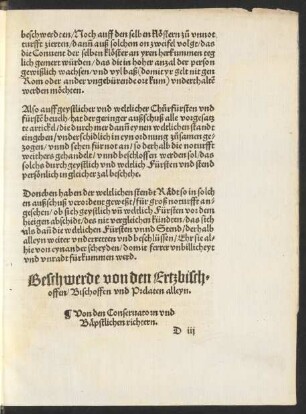 beschwerdten / Noch auff den selben klöstern zů vnnot
turfft zierten / dann auß solchen on zweifel volge / das
die Conuent der selben klöster an yren herkummen teg
lich gemert würden / das die in hoher anzal der person
gewißlich wachsen / vnd vyl baß (do mit yr gelt nit gen
Rom oder ander vngebürende ort kum) vnderhalte
werden möchten.
Also auff geystlicher vnd weltlicher Chürfürsten vnd
fürste beuelh / hat der geringer außschuß alle vorgesatz
te artickel / die durch mer dann eynen weltlichen standt
eingeben / vnderschidlich in eyn ordnung zůsamen ge
zogen / vnnd sehen für not an / so derhalb die noturfft
weithers gehandelt / vnnd beschlossen werden sol / das
solchs durch geystlich vnd weltlich Fürsten vnd stend
persönlich in gleicher zal beschehe.
Doneben haben der weltlichen stendt Rådt so in solch
en außschuß verordent geweßt / für groß noturfft an
gesehen / ob sich geystlich vñ weltlich Fürsten vor dem
yetzigen abschide / des nit vergleichen kündten / das sich
als dañ die weltlichen Fürsten vnnd Stend / derhalb
alleyn weiter vnderretten vnd beschlüssen / Ehr sie al
hie von eynander scheyden / do mit ferrer vnbillicheyt
vnd vnradt fürkummen werd.
Beschwerde von den Ertzbisch-
offen / Bischoffen vnd Prelaten alleyn.
¶ Von den Conseruatorn vnd
Bäpstlichen richtern.
D iij